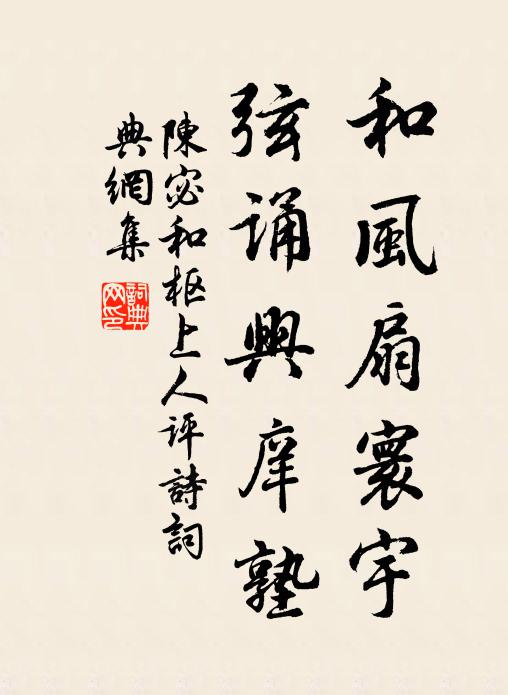 和風扇寰宇
弦誦興庠塾
陳宓和枢上人评詩詞
典網集
詞典网印